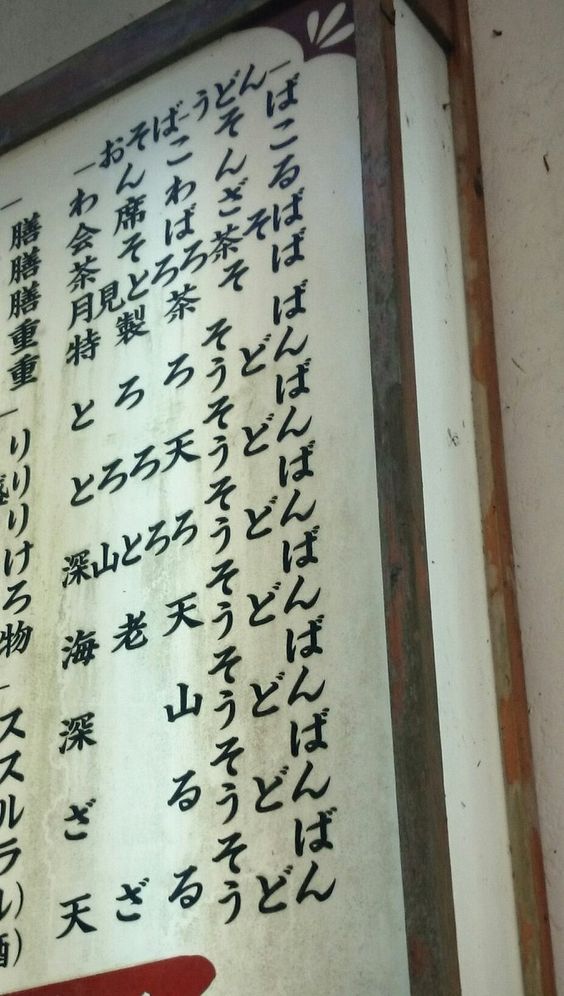 －おそば・うどん－
わんこそば
会席わんこ
茶そばざる
月見とろろ茶そば
特製茶そば
とろろ そば
うどん
とろろ天 そば
うどん
深山とろろ そば
うどん
海老天 そば
うどん
深山 そば
うどん
ざる そば
うどん
天ざる そば
うどん
－
膳
膳
膳
重
重
－
り
り
り
け
ろ
物
－
ス
ス
ル
ラ